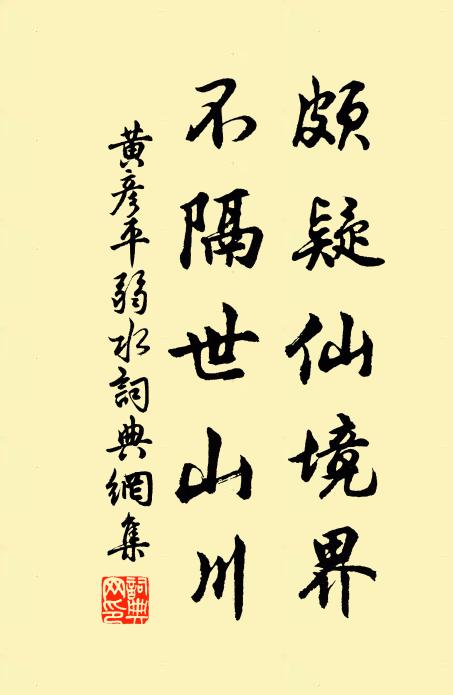 頗疑仙境界
不隔世山川
黃彥平弱水詞典網集